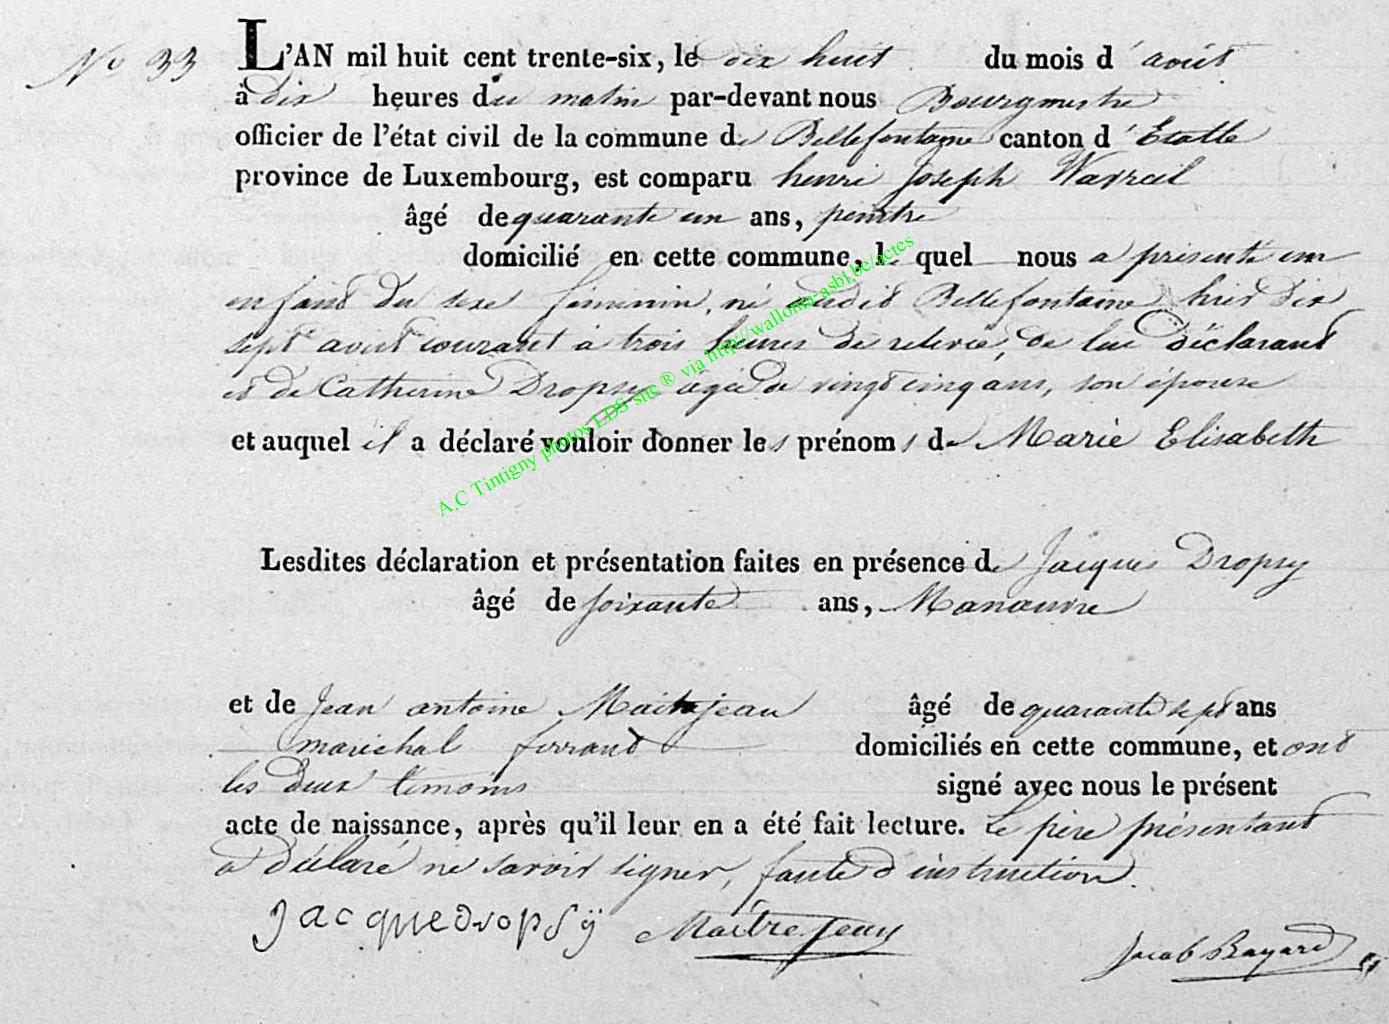 No 33
L'AN mil huit cent trente-six, le dix huit du mois d'août
à dix heures du matin par-devant nous Bourgmestre
officier de l'état civil de la commune de Bellefontaine canton d'Etalle
province de Luxembourg, est comparu henri Joseph
âgé de quarante un ans, peintre
domicilié en cette commune, le quel nous a présenté un
enfant du sexe féminin, né audit Bellefontaine hier dix
sept août courant à trois heures de relevée, de lui déclarant
et de Catherine Dropsy agée de vingt cinq ans, son épouse
et auquel il a déclaré vouloir donner les prénoms de Marie Elisabeth
Lesdites déclaration et présentation faites en présence de Jacques Dropsy
âgé de soixante ans, Manœuvre
et de Jean antoine Maitrejean âgé de quarante sept ans
maréchal ferrant domiciliés en cette commune, et ont
les deux témoins signé avec nous le présent
acte de naissance, après qu'il leur en a été fait lecture. Le père présentant
a déclaré ne savoir signer, faute d'instruction.
Jacque dropsÿ Maitrejean Jacob Bayard
A.C Tintigny photos LDS site ® via http://wallonia-asbl.be/actes